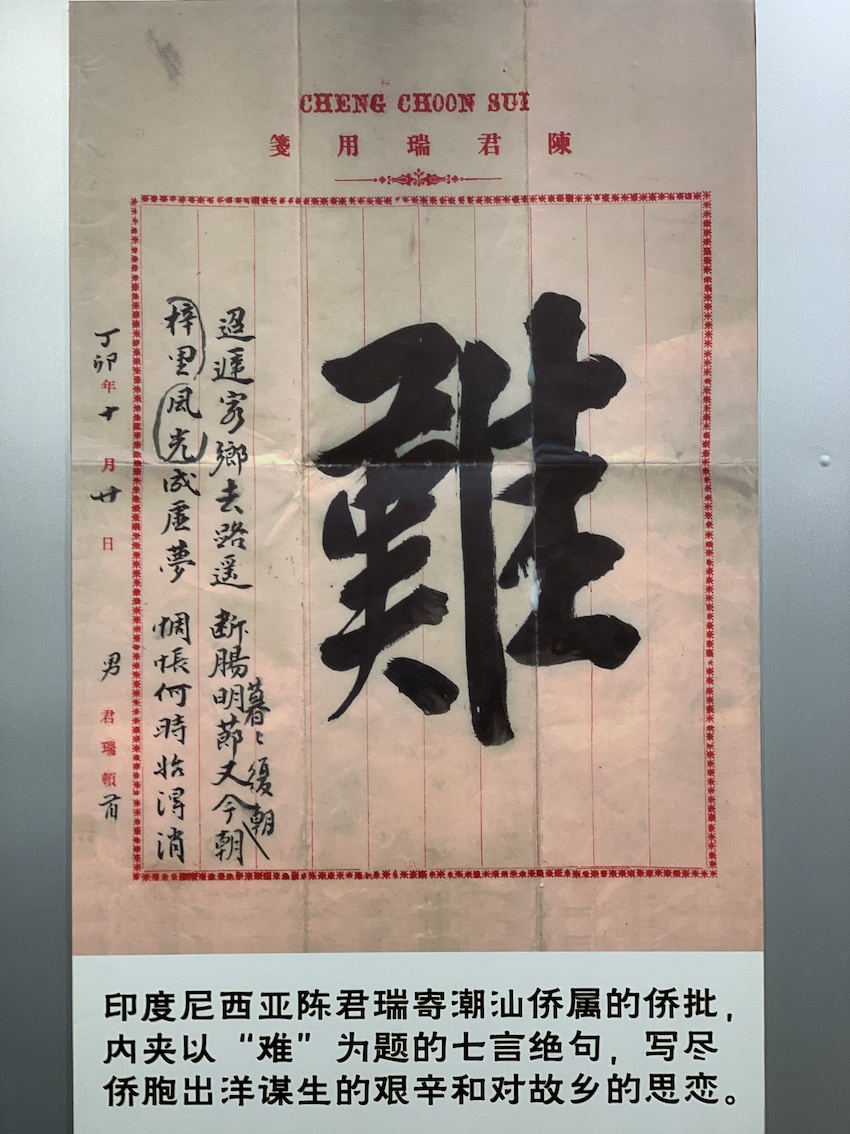 CHENG CHOON SUI
陳君瑞用箋
難
迢遞客鄉去路遥 断腸明莭又今朝
暮々復朝
梓里風光成虛夢 惆悵何時始淂消
丁卯年十月廿日 男君瑞頓首
印度尼西亚陈君瑞寄潮汕侨属的侨批，
内夹以“难”为题的七言绝句，写尽
侨胞出洋谋生的艰辛和对故乡的思恋。